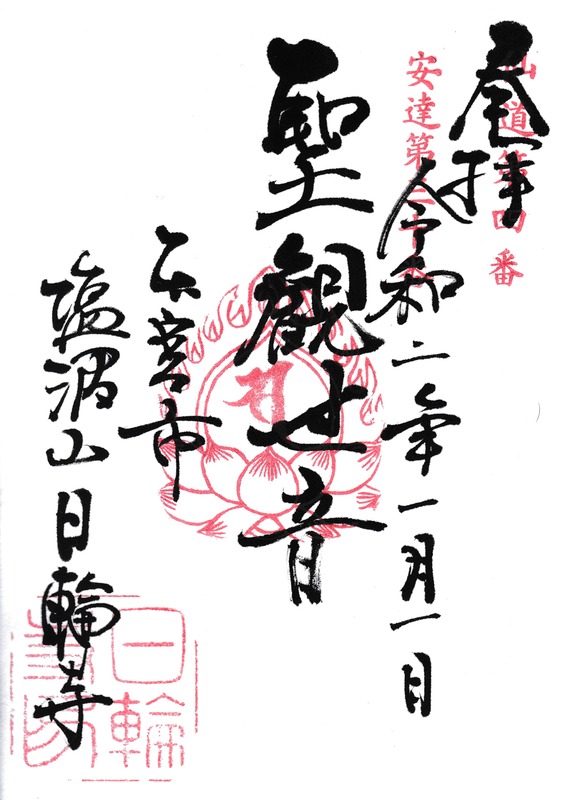 仙道第四番
奉拝
安達第
令和二年一月一日
聖観世音
本宮市
塩 山 日輪寺
日輪
寺印